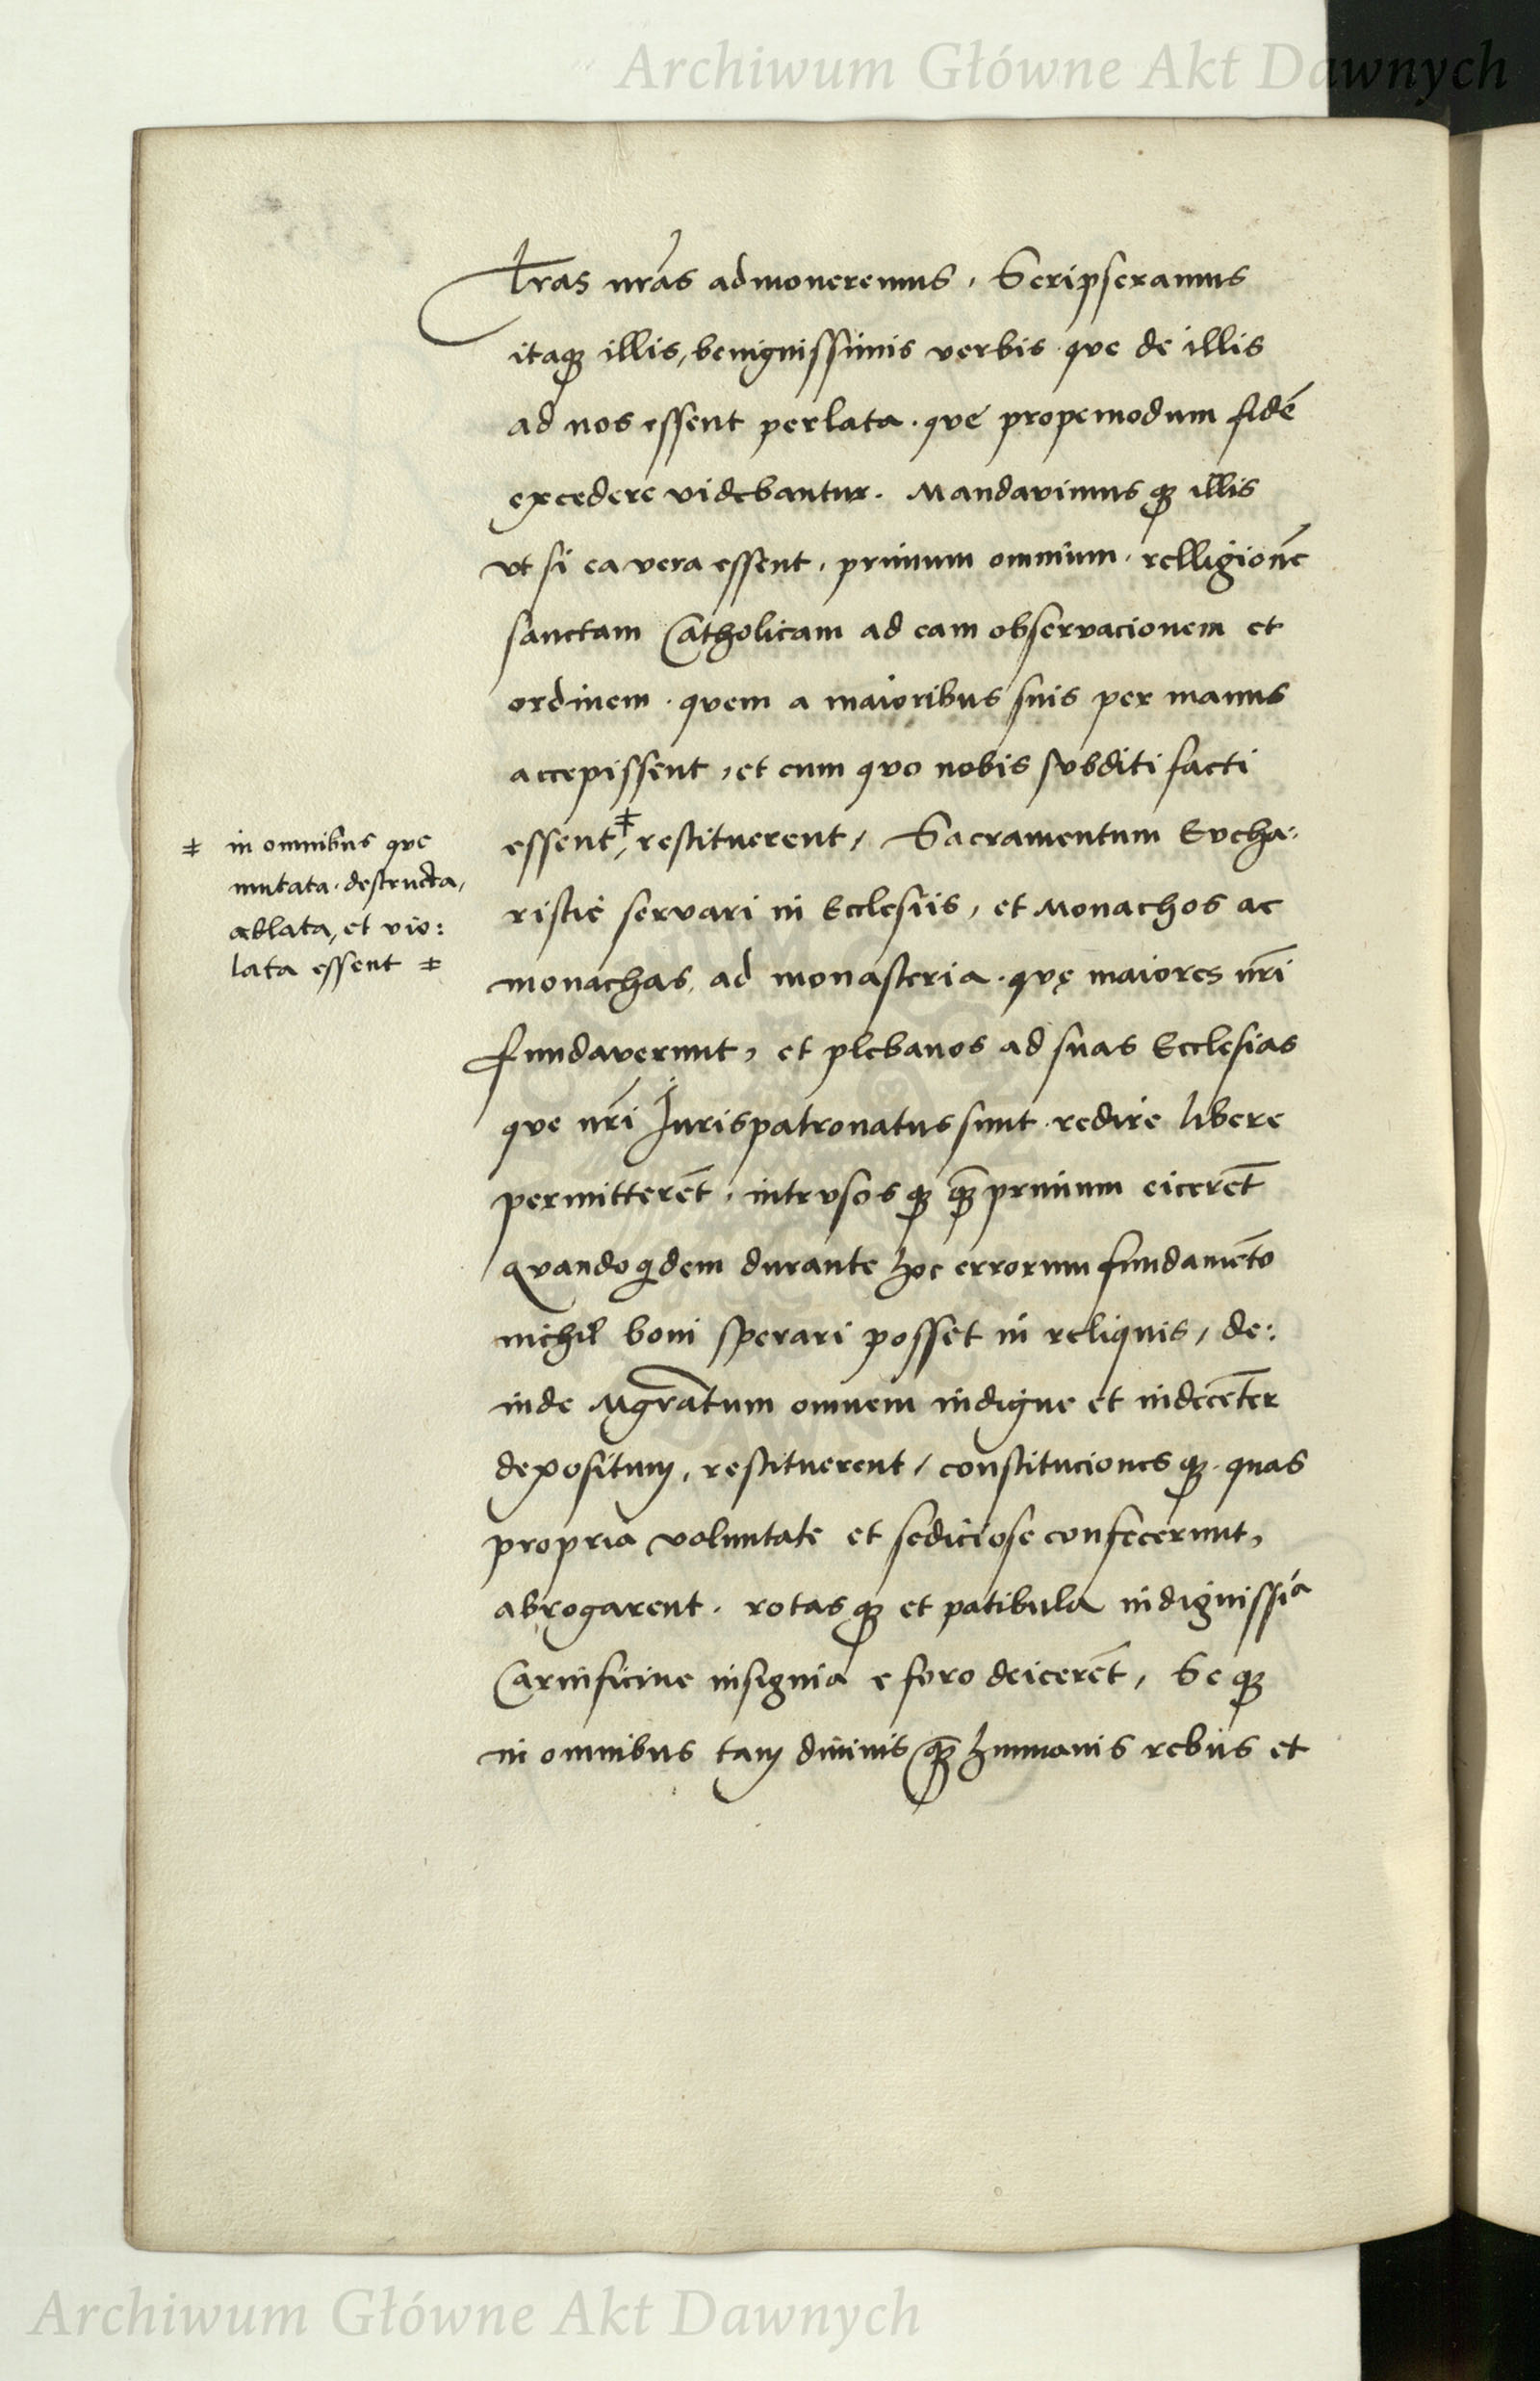 Archiwum Główne Akt Dawnych
Lras nras admoneremus, Scripseramus
itaqȝ illis, benignissimis verbis que de illis
ad nos essent perlata. que propemodum fidē
excedere videbantur. Mandavimus qȝ illis
vt si ea vera essent, primum omnium. relligionē
sanctam Catholicam ad eam observacionem et
ordinem. quem a maioribus suis per manus
accepissent, et cum quo nobis subditi facti
essent ǂ, restituerent, Sacramentum Eucha:
ristie servari in Ecclesiis, et Monachos ac
monachas, ad monasteria. quę maiores nri
fundaverunt, et plebanos ad suas Ecclesias
que nri Jurispatronatus sunt. redire libere
permitterēt, intrusos qȝ qȝ̄primum eicerēt
quandoqidem durante hoc errorum fundamēto
nichil boni sperari posset in reliquis, de:
inde Mgratum omnem indigne et indecēter
depositum, restituerent, constituciones qȝ. quas
propria voluntate et sediciose confecerunt,
abrogarent. rotas qȝ et patibula indignissia
Carnificine insignia e foro deicerēt, Se qȝ
in omnibus tam divinis qȝ̄ humanis rebus et
ǂ in omnibus que
mutata. destructa,
ablata, et vio:
lata essent ǂ
Archiwum Główne Akt Dawnych